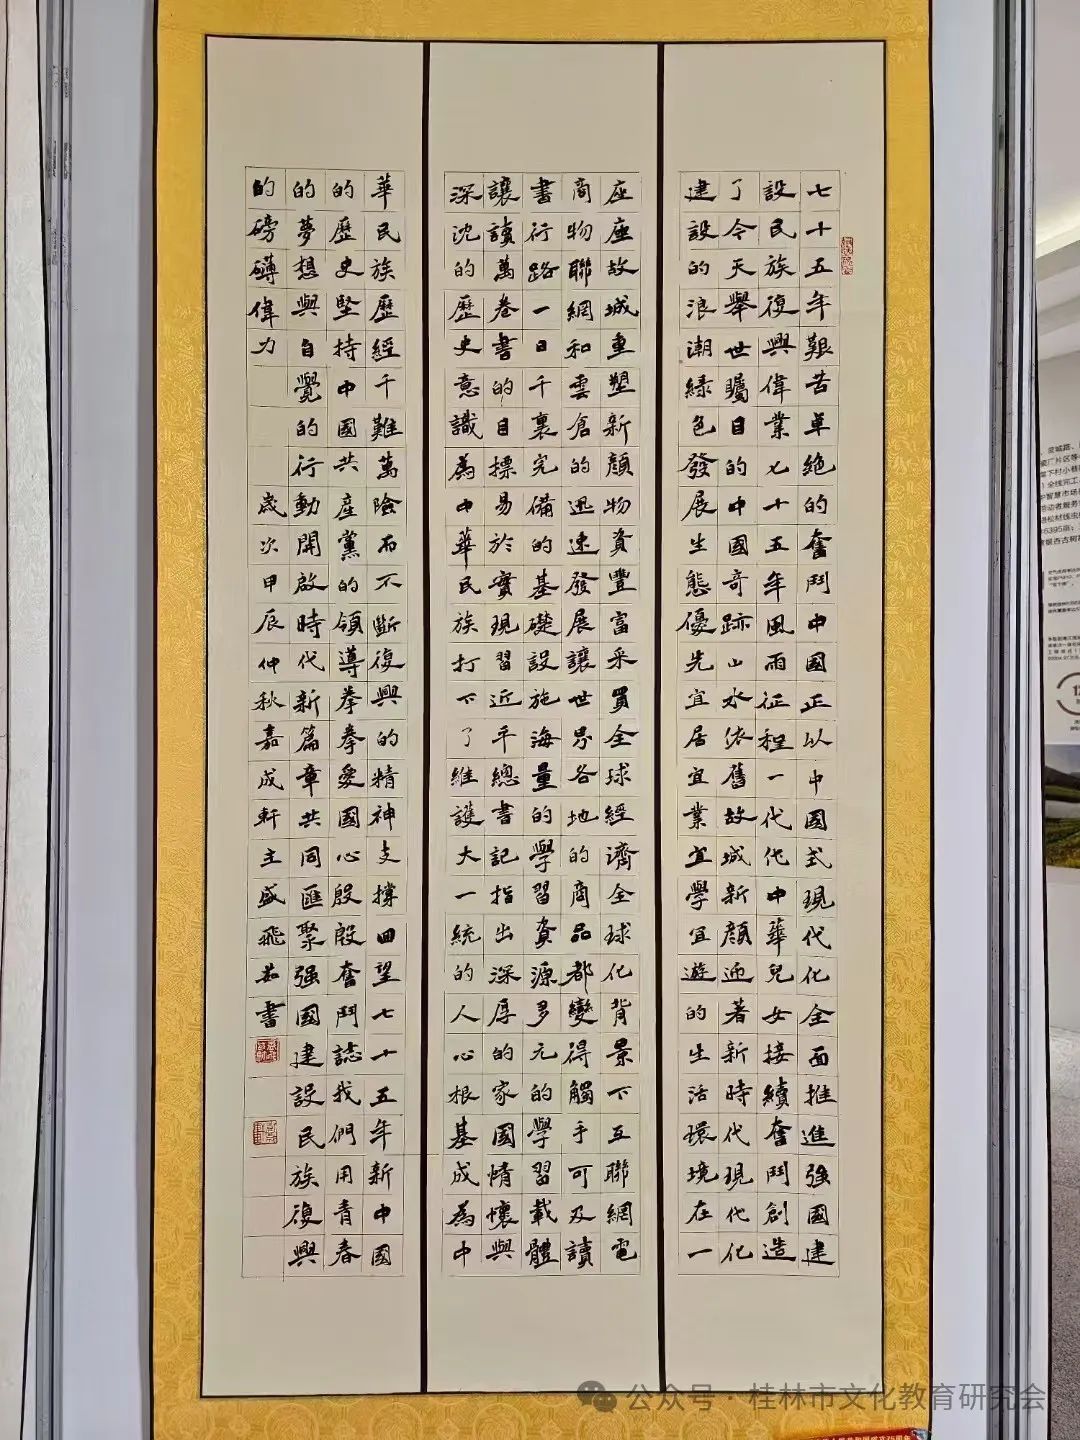 七十五年艱苦卓絕的奮鬥中國正以中國式現代化全面推進強國建
設民族復興偉業七十五年風雨征程一代代中華兒女接續奮鬥創造
了令天舉世矚目的中國奇跡山水依舊故城新顏迎著新時代現代化
建設的浪潮綠色發展生態優先宜居宜業宜學宜遊的生活環境在一
座座故城重塑新顏物資豐富采買全球經濟全球化背景下互聯網電
商物聯網和雲倉的迅速發展讓世界各地的商品都變得觸手可及讀
書行路一日千裏完備的基礎設施海量的學習資源多元的學習載體
讓讀萬卷書的目標易於實現習近平總書記指出深厚的家國情懷與
深沈的歷史意識為中華民族打下了維護大一統的人心根基成為中
華民族歷經千難萬險而不斷復興的精神支撐回望七十五年新中國
的歷史堅持中國共產黨的領導拳拳愛國心殷殷奮鬥誌我們用青春
的夢想與自覺的行動開啟時代新篇章共同匯聚強國建設民族復興
的磅礴偉力 歲次甲辰仲秋嘉成軒主盛飛茹書
公众号·桂林市文化教育研究会